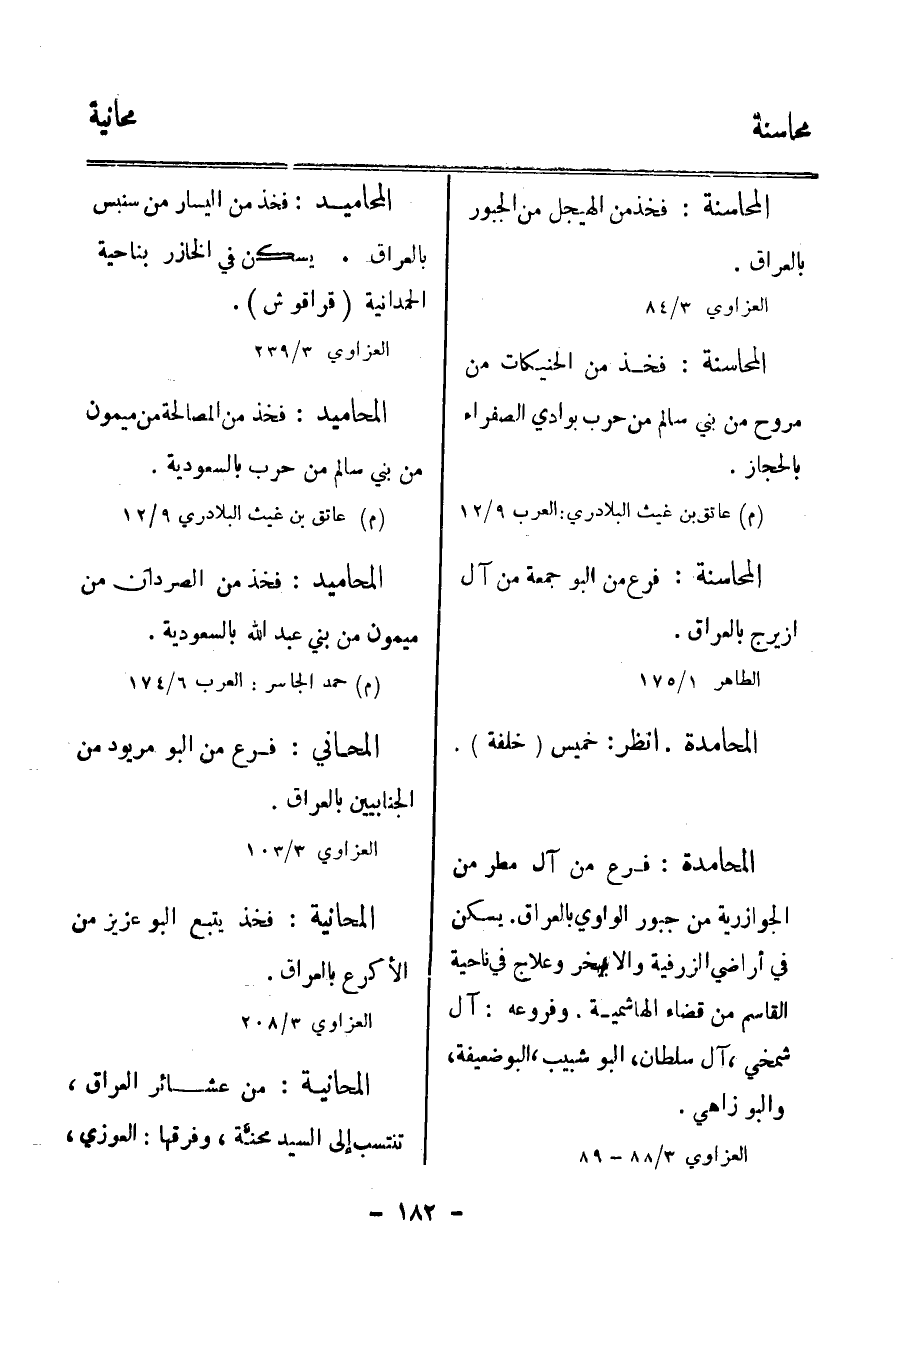 محاسنة
محانية
المحاسنة : فخذ من الهيجل من الجبور
بالعراق .
العزاوي ٨٤/٣
المحاسنة : فخـذ من الحنيكات من
مروح من بني سالم من حرب بوادي الصفراء
بالحجاز .
(م) عاتق بن غيث البلادري : العرب ١٢/٩
المحاسنة : فرع من البو جمعة من آل
ازيرج بالعراق .
الطاهر ١٧٥/١
المحامدة . انظر : خميس ( خلفة ) .
المحامدة : فـرع من آل مطر من
الجوازرية من جبور الواوي بالعراق . يسكن
في أراضي الزرفية والابيخر وعلاج في ناحية
القاسم من قضاء الهاشميـة . وفروعه : آل
شمخي ، آل سلطان، البو شبيب ، البوضعيفة،
والبو زاهي .
العزاوي ٨٨/٣ - ٨٩
المحاميـد : فخذ من اليسار من سنبس
بالعراق . يسكن في الخازر بناحية
الحمدانية ( قراقوش ) .
العزاوي ٢٣٩/٣
المحاميد : فخذ من المصالحة من ميمون
من بني سالم من حرب بالسعودية .
(م) عاتق بن غيث البلادري ١٢/٩
المحاميد : فخذ من الصردان من
ميمون من بني عبد الله بالسعودية .
(م) حمد الجاسر : العرب ١٧٤/٦
المحـاني : فـرع من البو مريود من
الجنابيين بالعراق .
العزاوي ١٠٣/٣
المحانية : فخذ يتبع البو عزيز من
الأكرع بالعراق .
العزاوي ٢٠٨/٣
المحانيـة : من عشـائر العراق ،
تنتسب إلى السيد محنّة ، وفرقها : العوزي ،
- ١٨٢ -